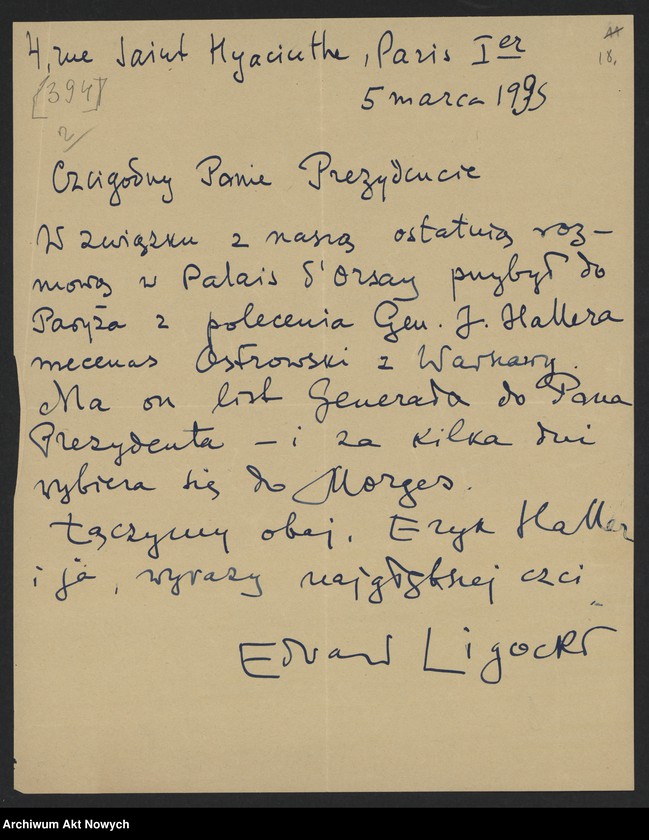 4, rue Saint Hyacinthe, Paris Ier
18.
[394]
2
5 marca 1935
Czcigodny Panie Prezydencie
W związku z naszą ostatnią roz-
mową w Palais d'Orsay przybył do
Paryża z polecenia Gen. J. Hallera
mecenas Ostrowski z Warszawy.
Ma on list Generała do Pana
Prezydenta – i za kilka dni
wybiera się do Morges.
Łączymy obaj, Eryk Haller
i ja, wyrazy najgłębszej czci
Edward Ligocki
Archiwum Akt Nowych